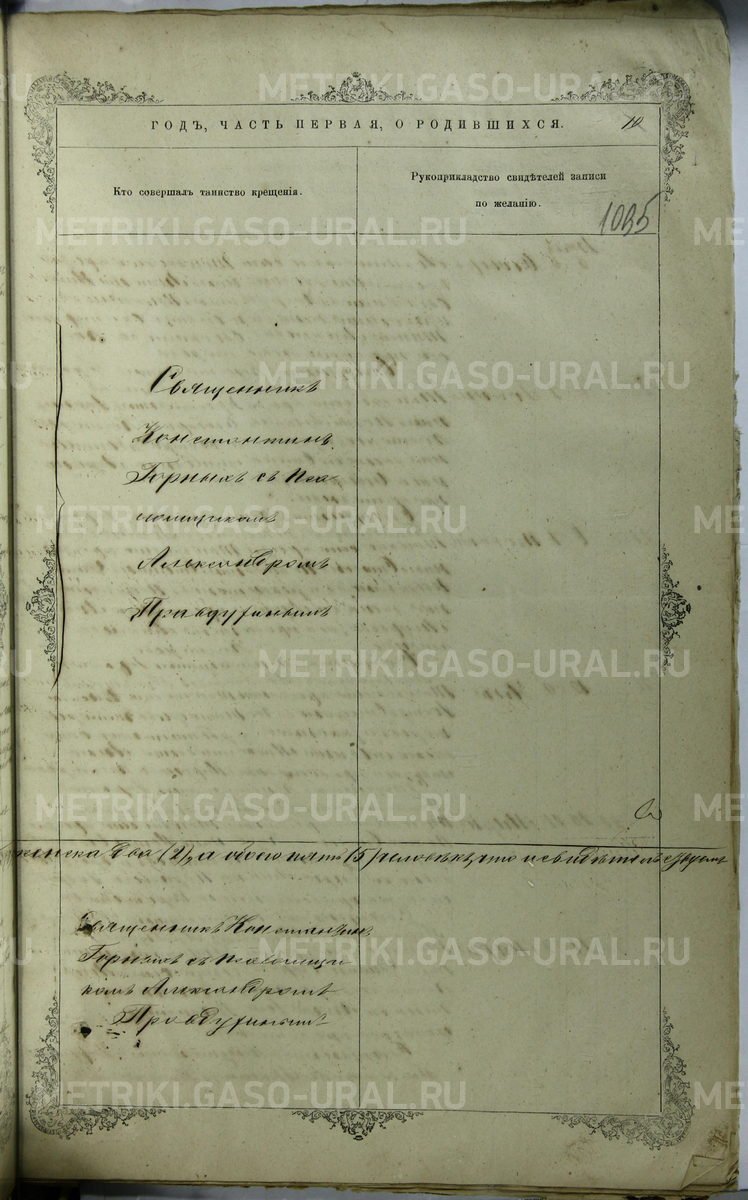 METRIKI.GASO-URAL.RU
ГОДЪ, ЧАСТЬ ПЕРВАЯ, О РОДИВШИХСЯ.
10
Кто совершалъ таинство крещенія.
Рукоприкладство свидѣтелей записи
по желанію.
1035
Священникъ
Константинъ
Горныхъ съ Пса-
ломщикомъ
Александромъ
Правдухинымъ
женска два (2), а обоего пять (5) человѣкъ, что и свидѣтельствуемъ
Священникъ Константинъ
Горныхъ съ псаломщи
комъ Александромъ
Правдухинымъ